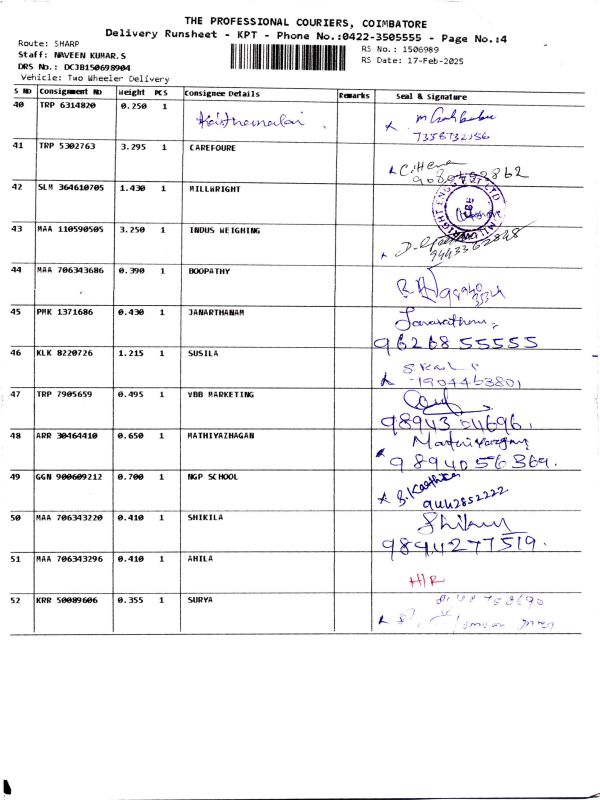 THE PROFESSIONAL COURIERS, COIMBATORE
Delivery Runsheet - KPT - Phone No.:0422-3505555 - Page No.:4
Route: SHARP
RS No.: 1506989
Staff: NAVEEN KUMAR.S
RS Date: 17-Feb-2025
DRS No.: DCJB150698904
Vehicle: Two Wheeler Delivery
S No Consignment No Weight PCS Consignee Details Remarks Seal & Signature
40 TRP 6314820 0.250 1
41 TRP 5302763 3.295 1 CAREFOURE
C. Hena
42 SLM 364610705 1.430 1 MILLWRIGHT
43 MAA 110590505 3.250 1 INDUS WEIGHING
44 MAA 706343686 0.390 1 BOOPATHY
45 PMK 1371686 0.430 1 JANARTHANAM
9626855555
46 KLK 8220726 1.215 1 SUSILA
1904463801
47 TRP 7905659 0.495 1 VBB MARKETING
48 ARR 30464410 0.650 1 MATHIYAZHAGAN
9894056369.
49 GGN 900609212 0.700 1 NGP SCHOOL
9442852222
50 MAA 706343220 0.410 1 SHIKILA
9894277519.
51 MAA 706343296 0.410 1 AHILA
H/R
52 KRR 50089606 0.355 1 SURYA